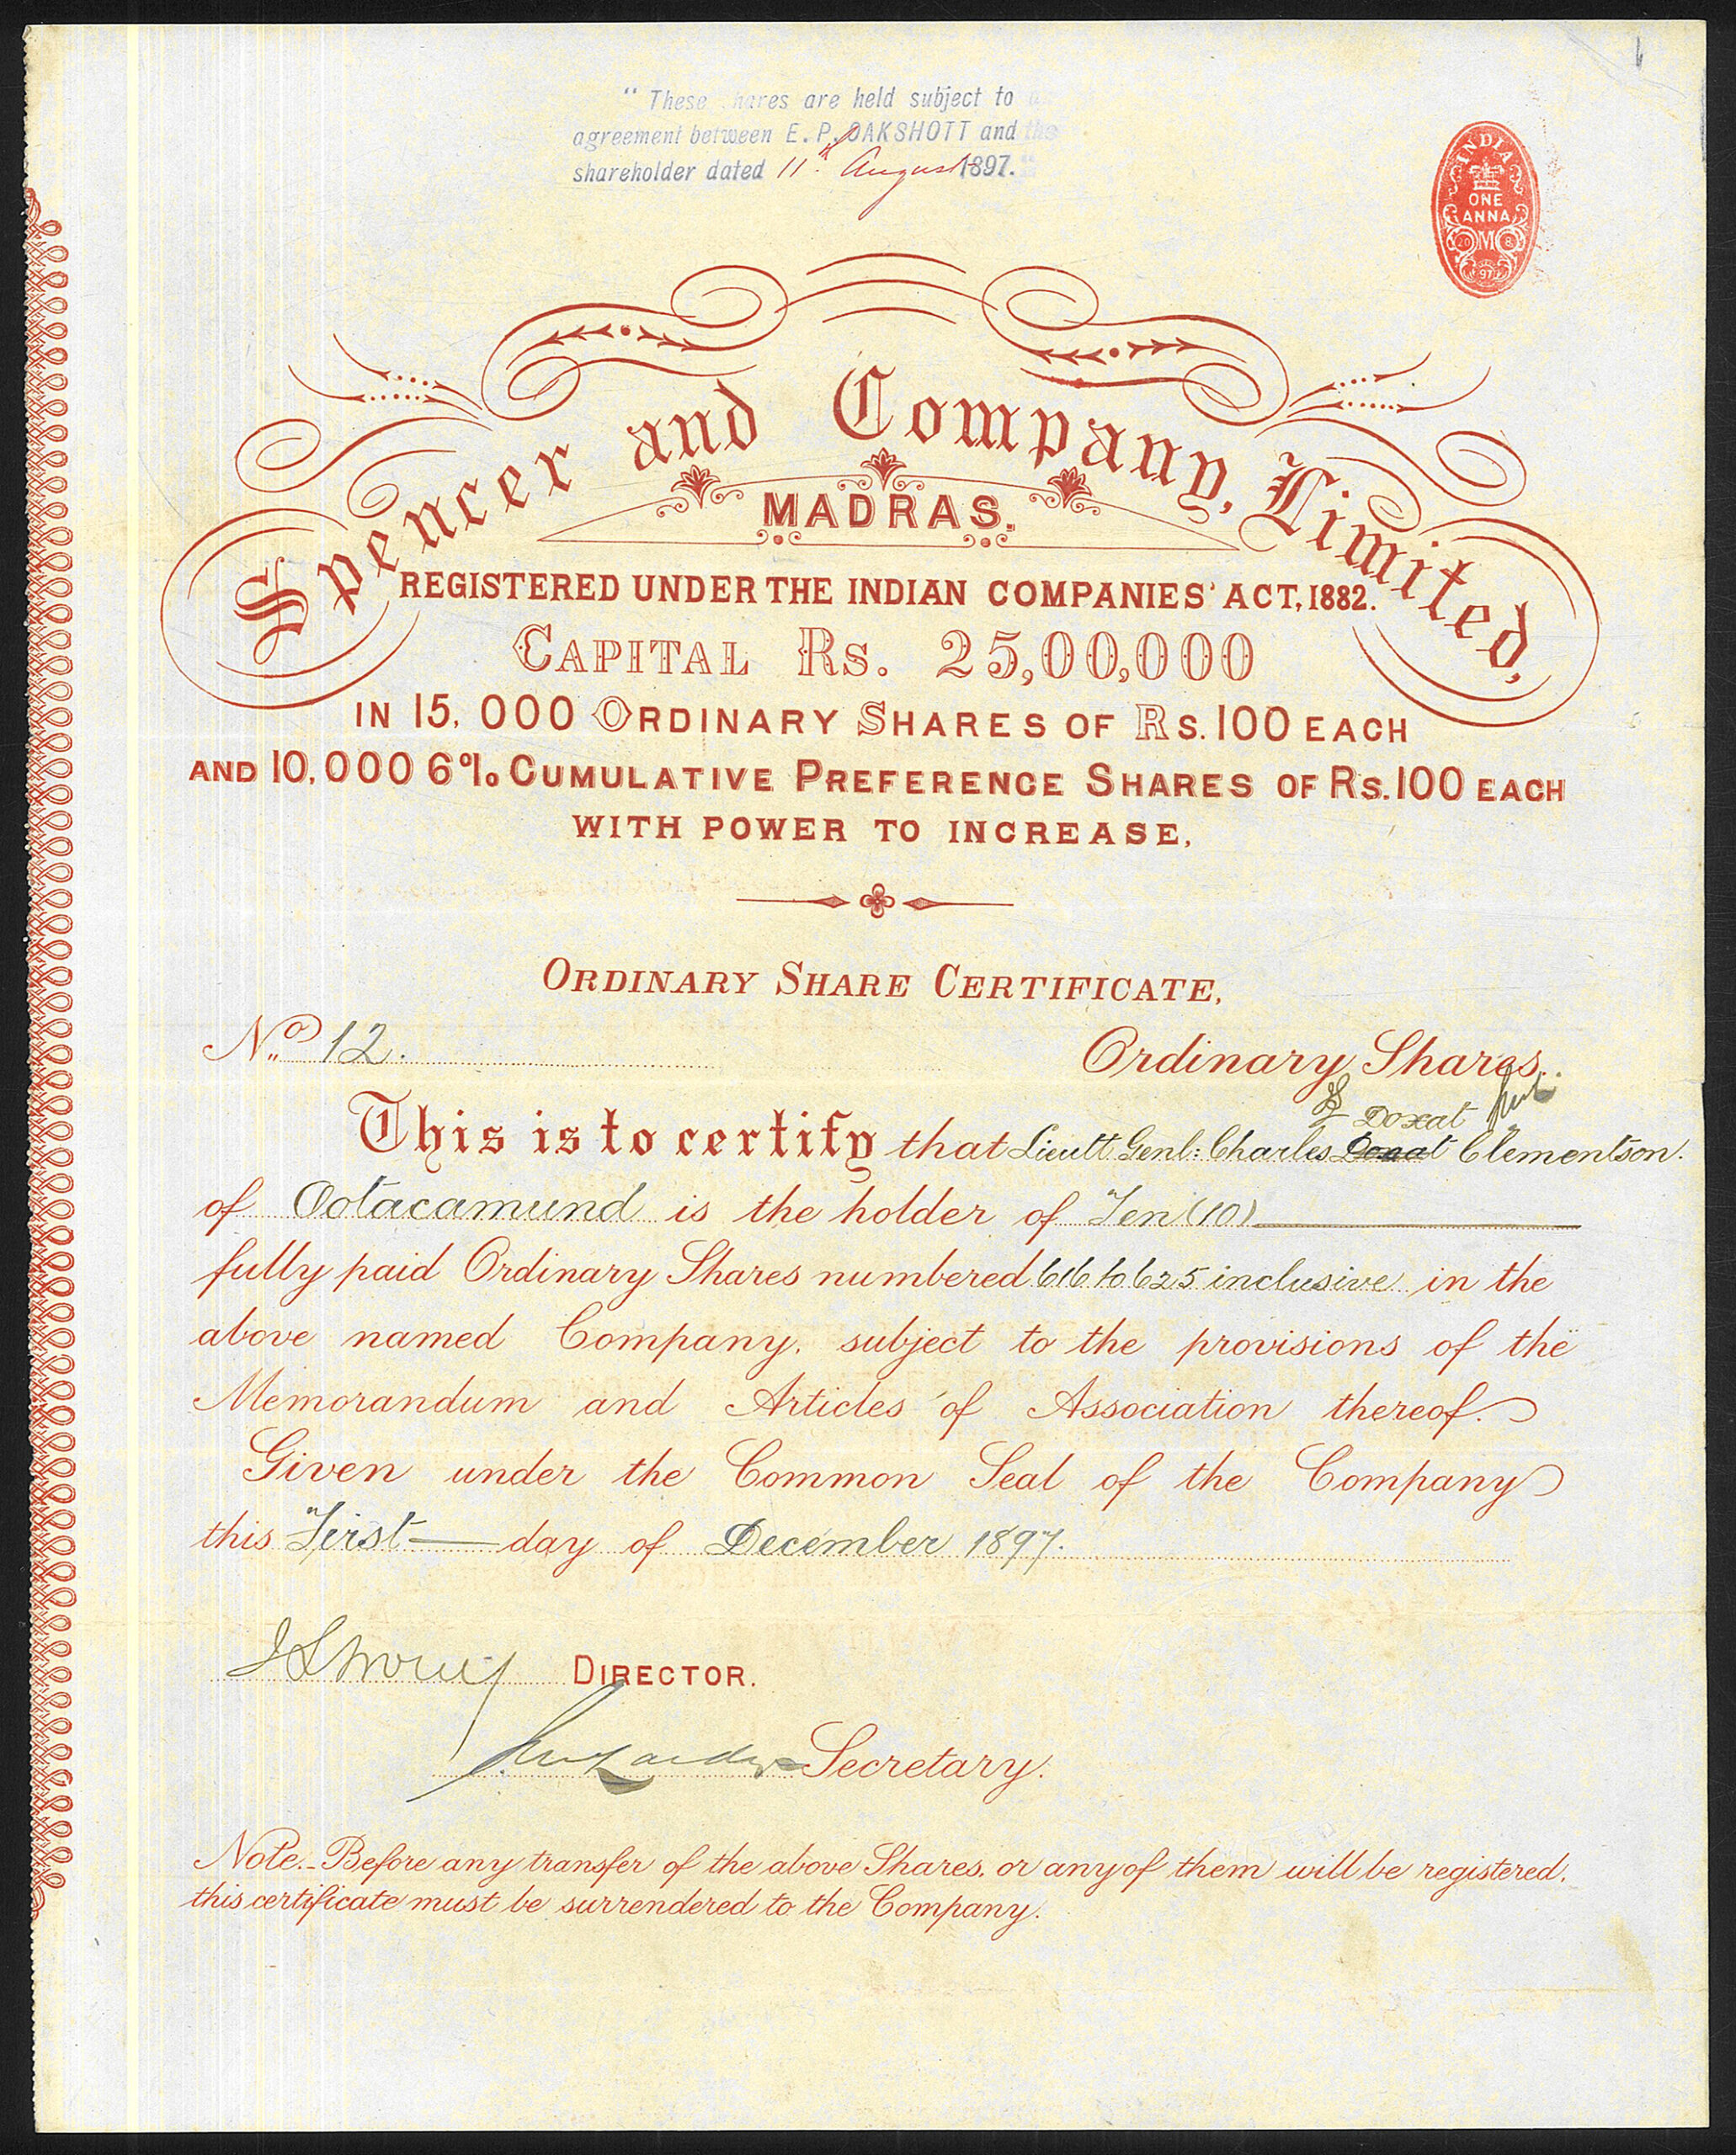 " These shares are held subject to
agreement between E. P. OAKSHOTT and the
shareholder dated 11th August 1897."
INDIA
ONE
ANNA
20 M 8
97
Spencer and Company, Limited,
MADRAS.
REGISTERED UNDER THE INDIAN COMPANIES' ACT, 1882.
CAPITAL RS. 25,00,000
IN 15,000 ORDINARY SHARES OF RS. 100 EACH
AND 10,000 6% CUMULATIVE PREFERENCE SHARES OF RS. 100 EACH
WITH POWER TO INCREASE.
ORDINARY SHARE CERTIFICATE.
No. 12. Ordinary Shares.
Doxat
This is to certify that Lieutt. Genl: Charles Clementson.
of Ootacamund is the holder of Ten (10)
fully paid Ordinary Shares numbered 616 to 625 inclusive in the
above named Company, subject to the provisions of the
Memorandum and Articles of Association thereof.
Given under the Common Seal of the Company
this First day of December 1897.
DIRECTOR.
Secretary.
Note.- Before any transfer of the above Shares, or any of them will be registered,
this certificate must be surrendered to the Company.